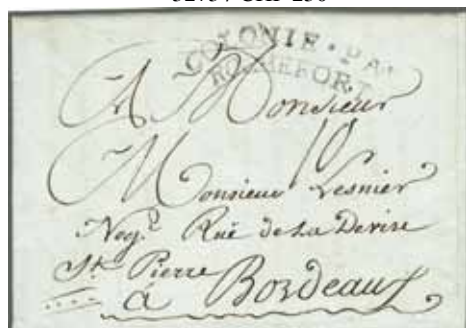 COLONIE · PAR
ROCHEFORT
A Monsieur
10
Monsieur Lesnier
Neg.t Ruë de La Devise
St. Pierre
á Bordeaux